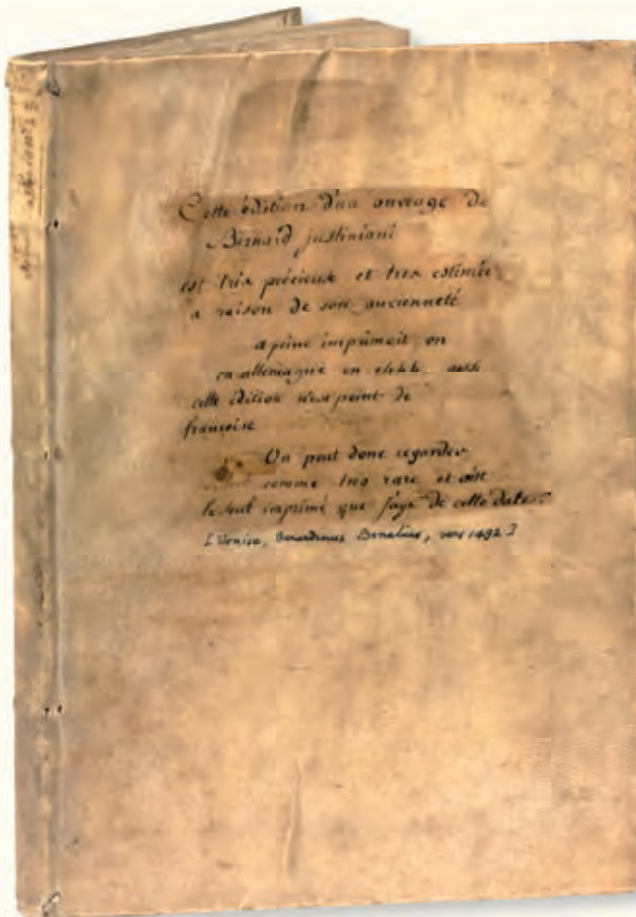 Cette édition d'un ouvrage de
Bernard justiniani
est très précieuse et tres estimée
a raison de son ancienneté
a peine imprimoit on
en allemagne en
cette édition n'est point de
francoise
On peut donc regarder
comme tres rare et c'est
le seul imprimé que j'aye de cette date.
[Venise, Bernardinus Benalius, vers 1492]